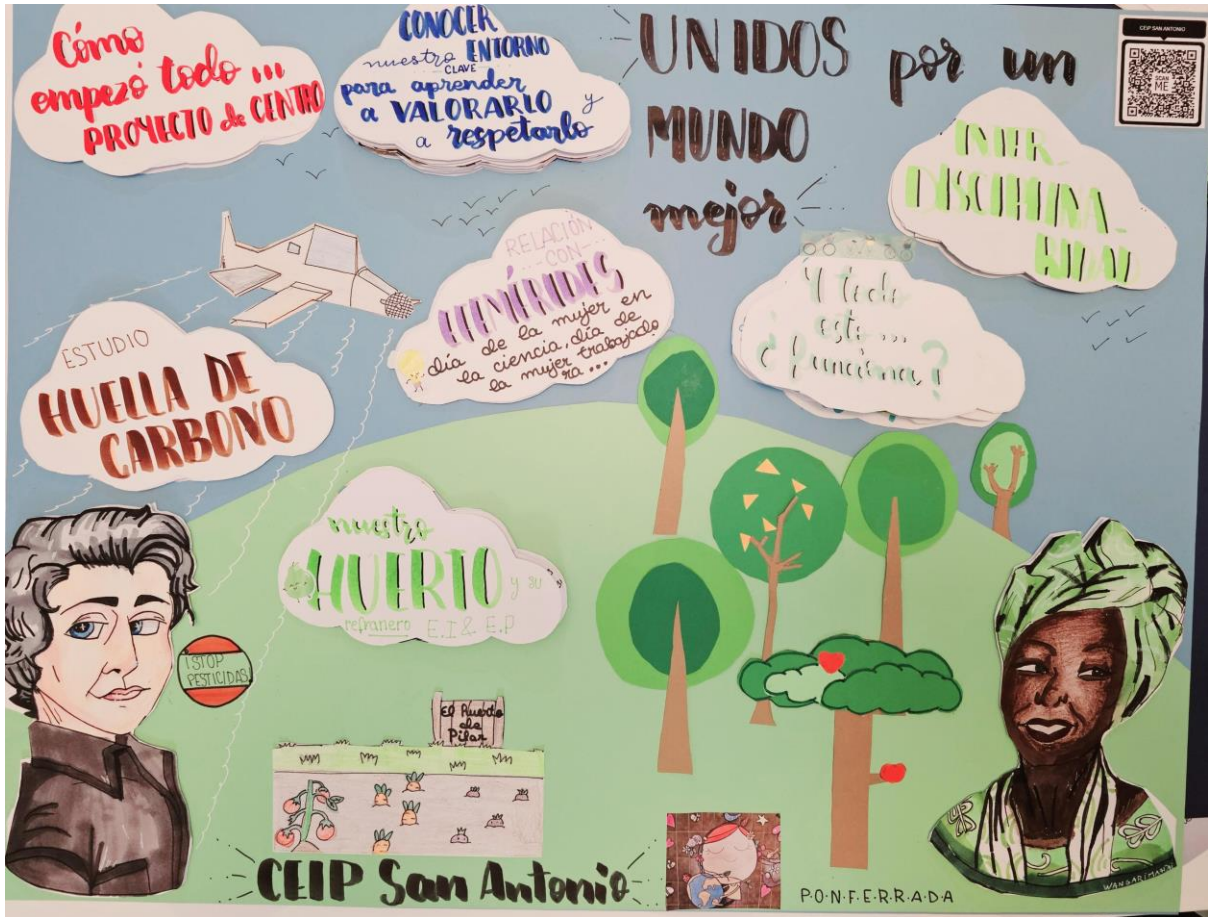 Cómo
empezó todo ...
PROYECTO de CENTRO
CONOCER
nuestro ENTORNO
CLAVE
para aprender
a VALORARLO y
a respetarlo
UNIDOS por un
MUNDO
mejor
CEIP SAN ANTONIO
SCAN
ME
INTER_
DISCIPLINA_
RIDAD
RELACIÓN
CON
EFEMÉRIDES
día de la mujer en
la ciencia, día de
la mujer trabajado
ra ...
Y todo
esto ...
¿funciona?
ESTUDIO
HUELLA DE
CARBONO
nuestro
HUERTO y su
refranero E.I & E.P
¡STOP
PESTICIDAS!
El Huerto
de
Pilar
CEIP San Antonio
P·O·N·F·E·R·R·A·D·A